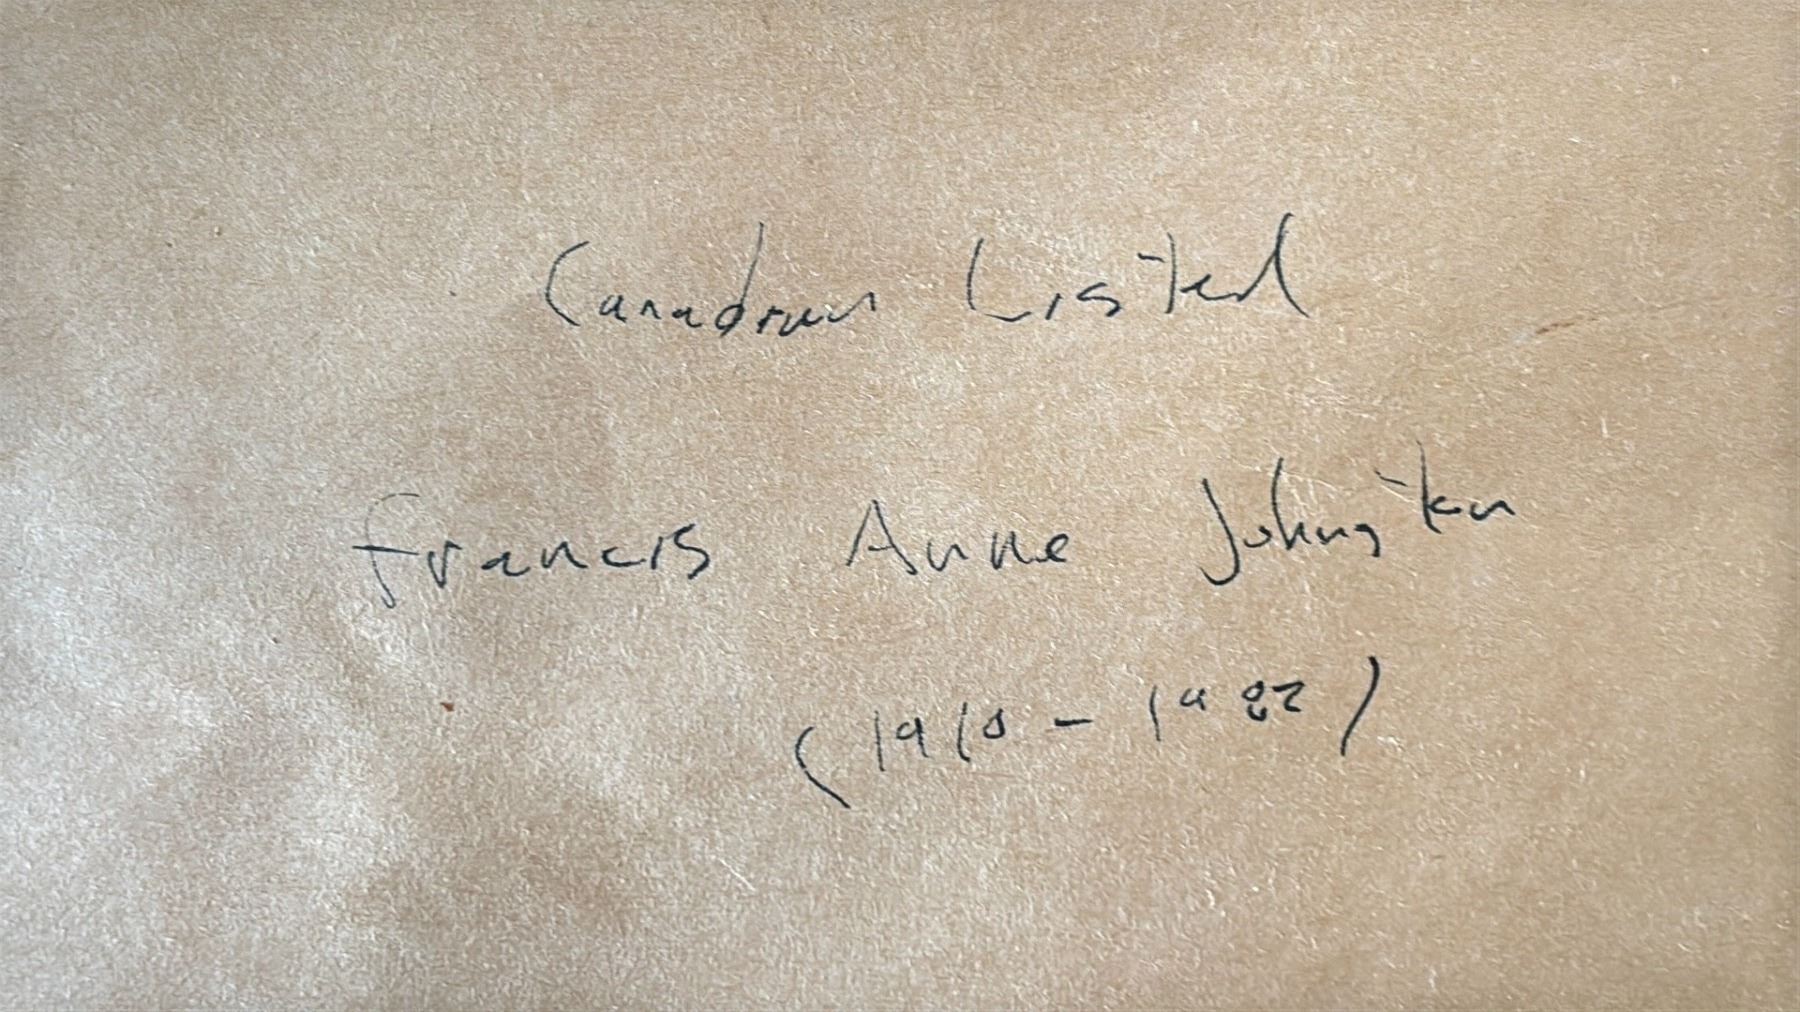 Canadian Listed
Francis Anne Johnston
(1910 - 1982)